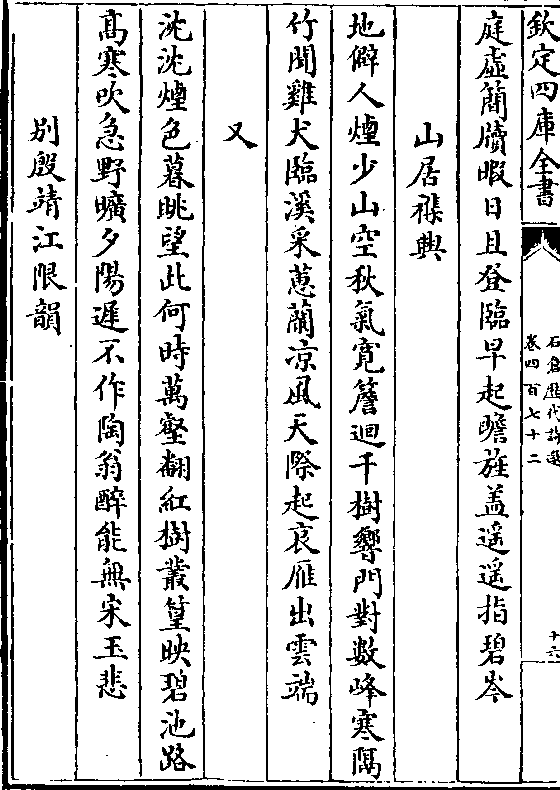 欽定四庫全書
石倉歷代詩選
卷四百七十二
十六
庭虛簡牘暇日且登臨早起瞻旌盖遥遥指碧岑
山居襍興
地僻人煙少山空秋氣寛簷迴千樹響門對數峰寒隔
竹聞雞犬臨溪采蕙蘭凉風天際起哀雁出雲端
又
沈沈煙色暮眺望此何時萬壑翻紅樹叢篁映碧池路
髙寒吹急野曠夕陽遲不作陶翁醉能無宋玉悲
别殷靖江限韻